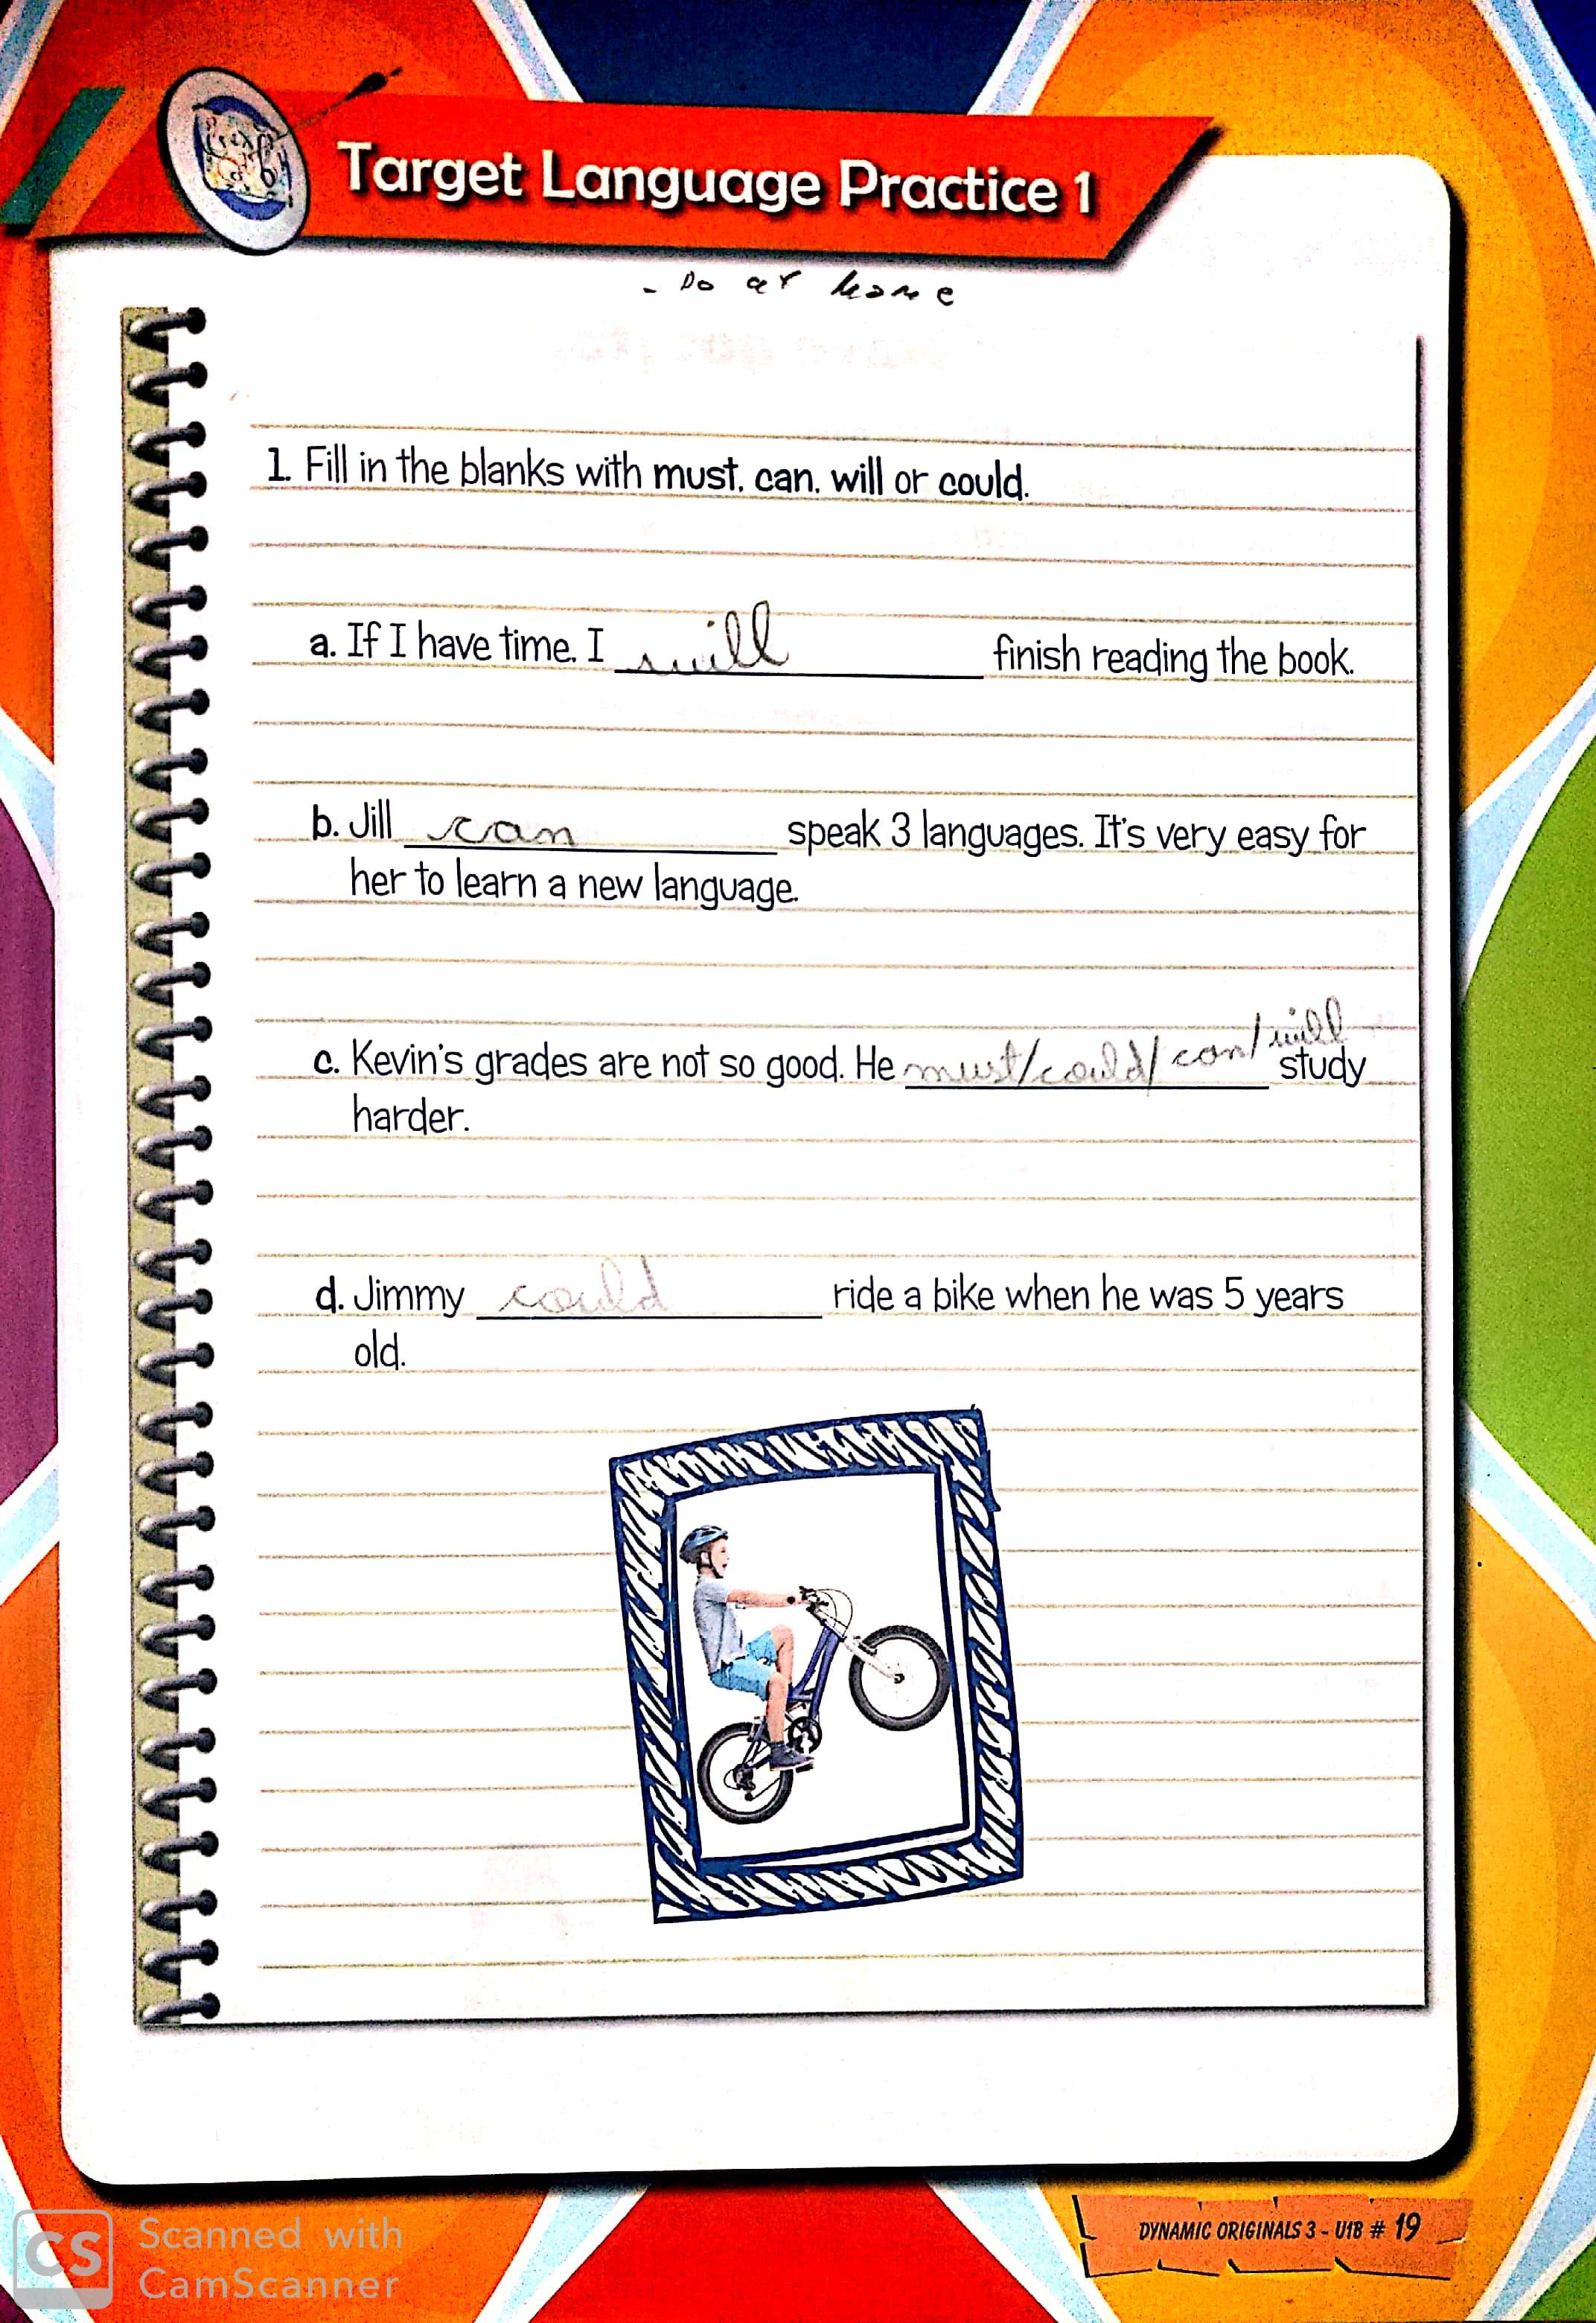 Target Language Practice 1
- Do at home
1. Fill in the blanks with must, can, will or could.
a. If I have time, I will finish reading the book.
b. Jill can speak 3 languages. It's very easy for
her to learn a new language.
c. Kevin's grades are not so good. He must/could/can/will study
harder.
d. Jimmy could ride a bike when he was 5 years
old.
DYNAMIC ORIGINALS 3 - U1B # 19
CS Scanned with
CamScanner